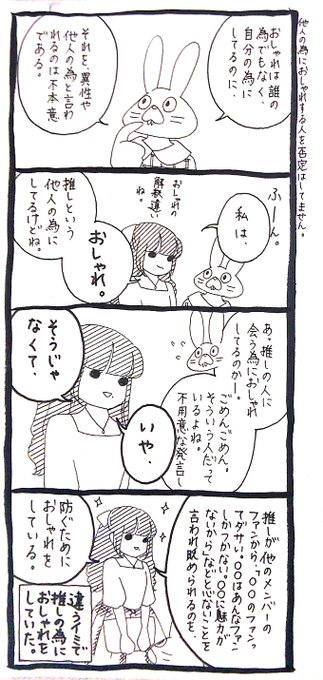 他人の為におしゃれする人を否定はしてません。
おしゃれは誰の
為でもなく、
自分の為に
してるのに、
それを、異性や
他人の為と言わ
れるのは不本意
である。
ふーん。
私は、
おしゃれの
解釈違い
ね。
推しという
他人の為に
してるけどね。
おしゃれ。
あ、推しの人に
会う為におしゃれ
してるのかー。
ごめんごめん。
そういう人だって
いるよね。
不用意な発言し
いや、
そうじゃ
なくて、
推しが他のメンバーの
ファンから、「○○のファンっ
てダサい。○○はあんなファン
しかつかない。○○に魅力が
ないから」などと心ないことを
言われ貶められるのを、
防ぐために
おしゃれを
している。
違うイミで
推しの為に
おしゃれを
していた。